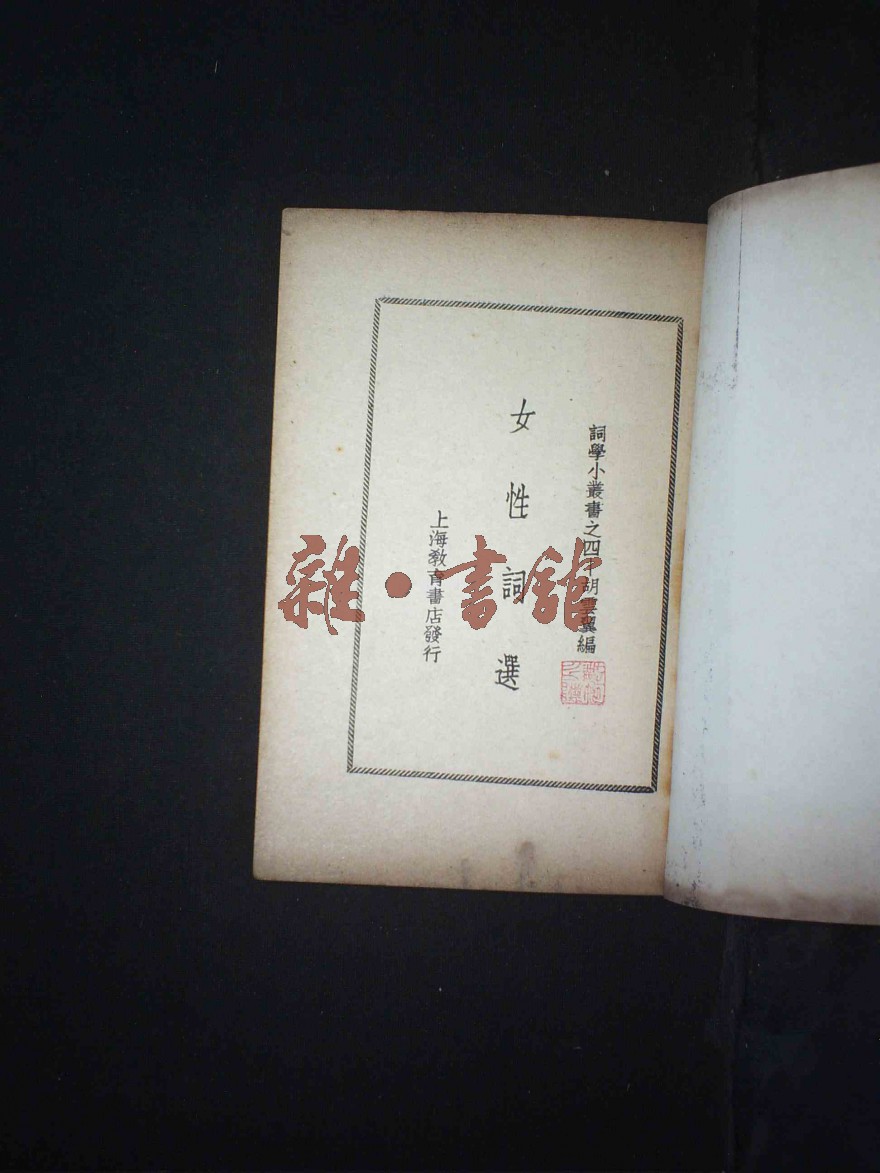 詞學小叢書之四 胡雲翼編
女性詞選
上海教育書店發行
雜·書館